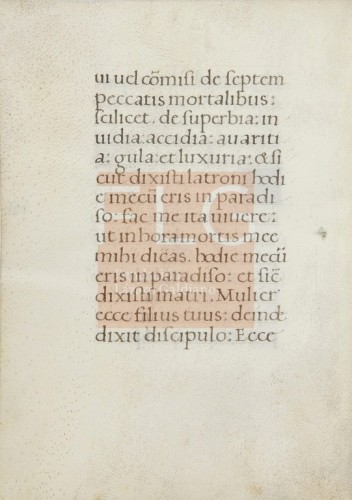 ui uel cōmisi de septem
peccatis mortalibus:
scilicet, de superbia: in
uidia: accidia: auariti
a: gula: et luxuria: & si
cut dixisti latroni hodi
e mecū eris in paradi
so: fac me ita uiuere:
ut in hora mortis mee
mihi dicas. hodie mecū
eris in paradiso: et sic̄
dixisti matri. Mulier
ecce filius tuus: deinde
dixit discipulo: Ecce